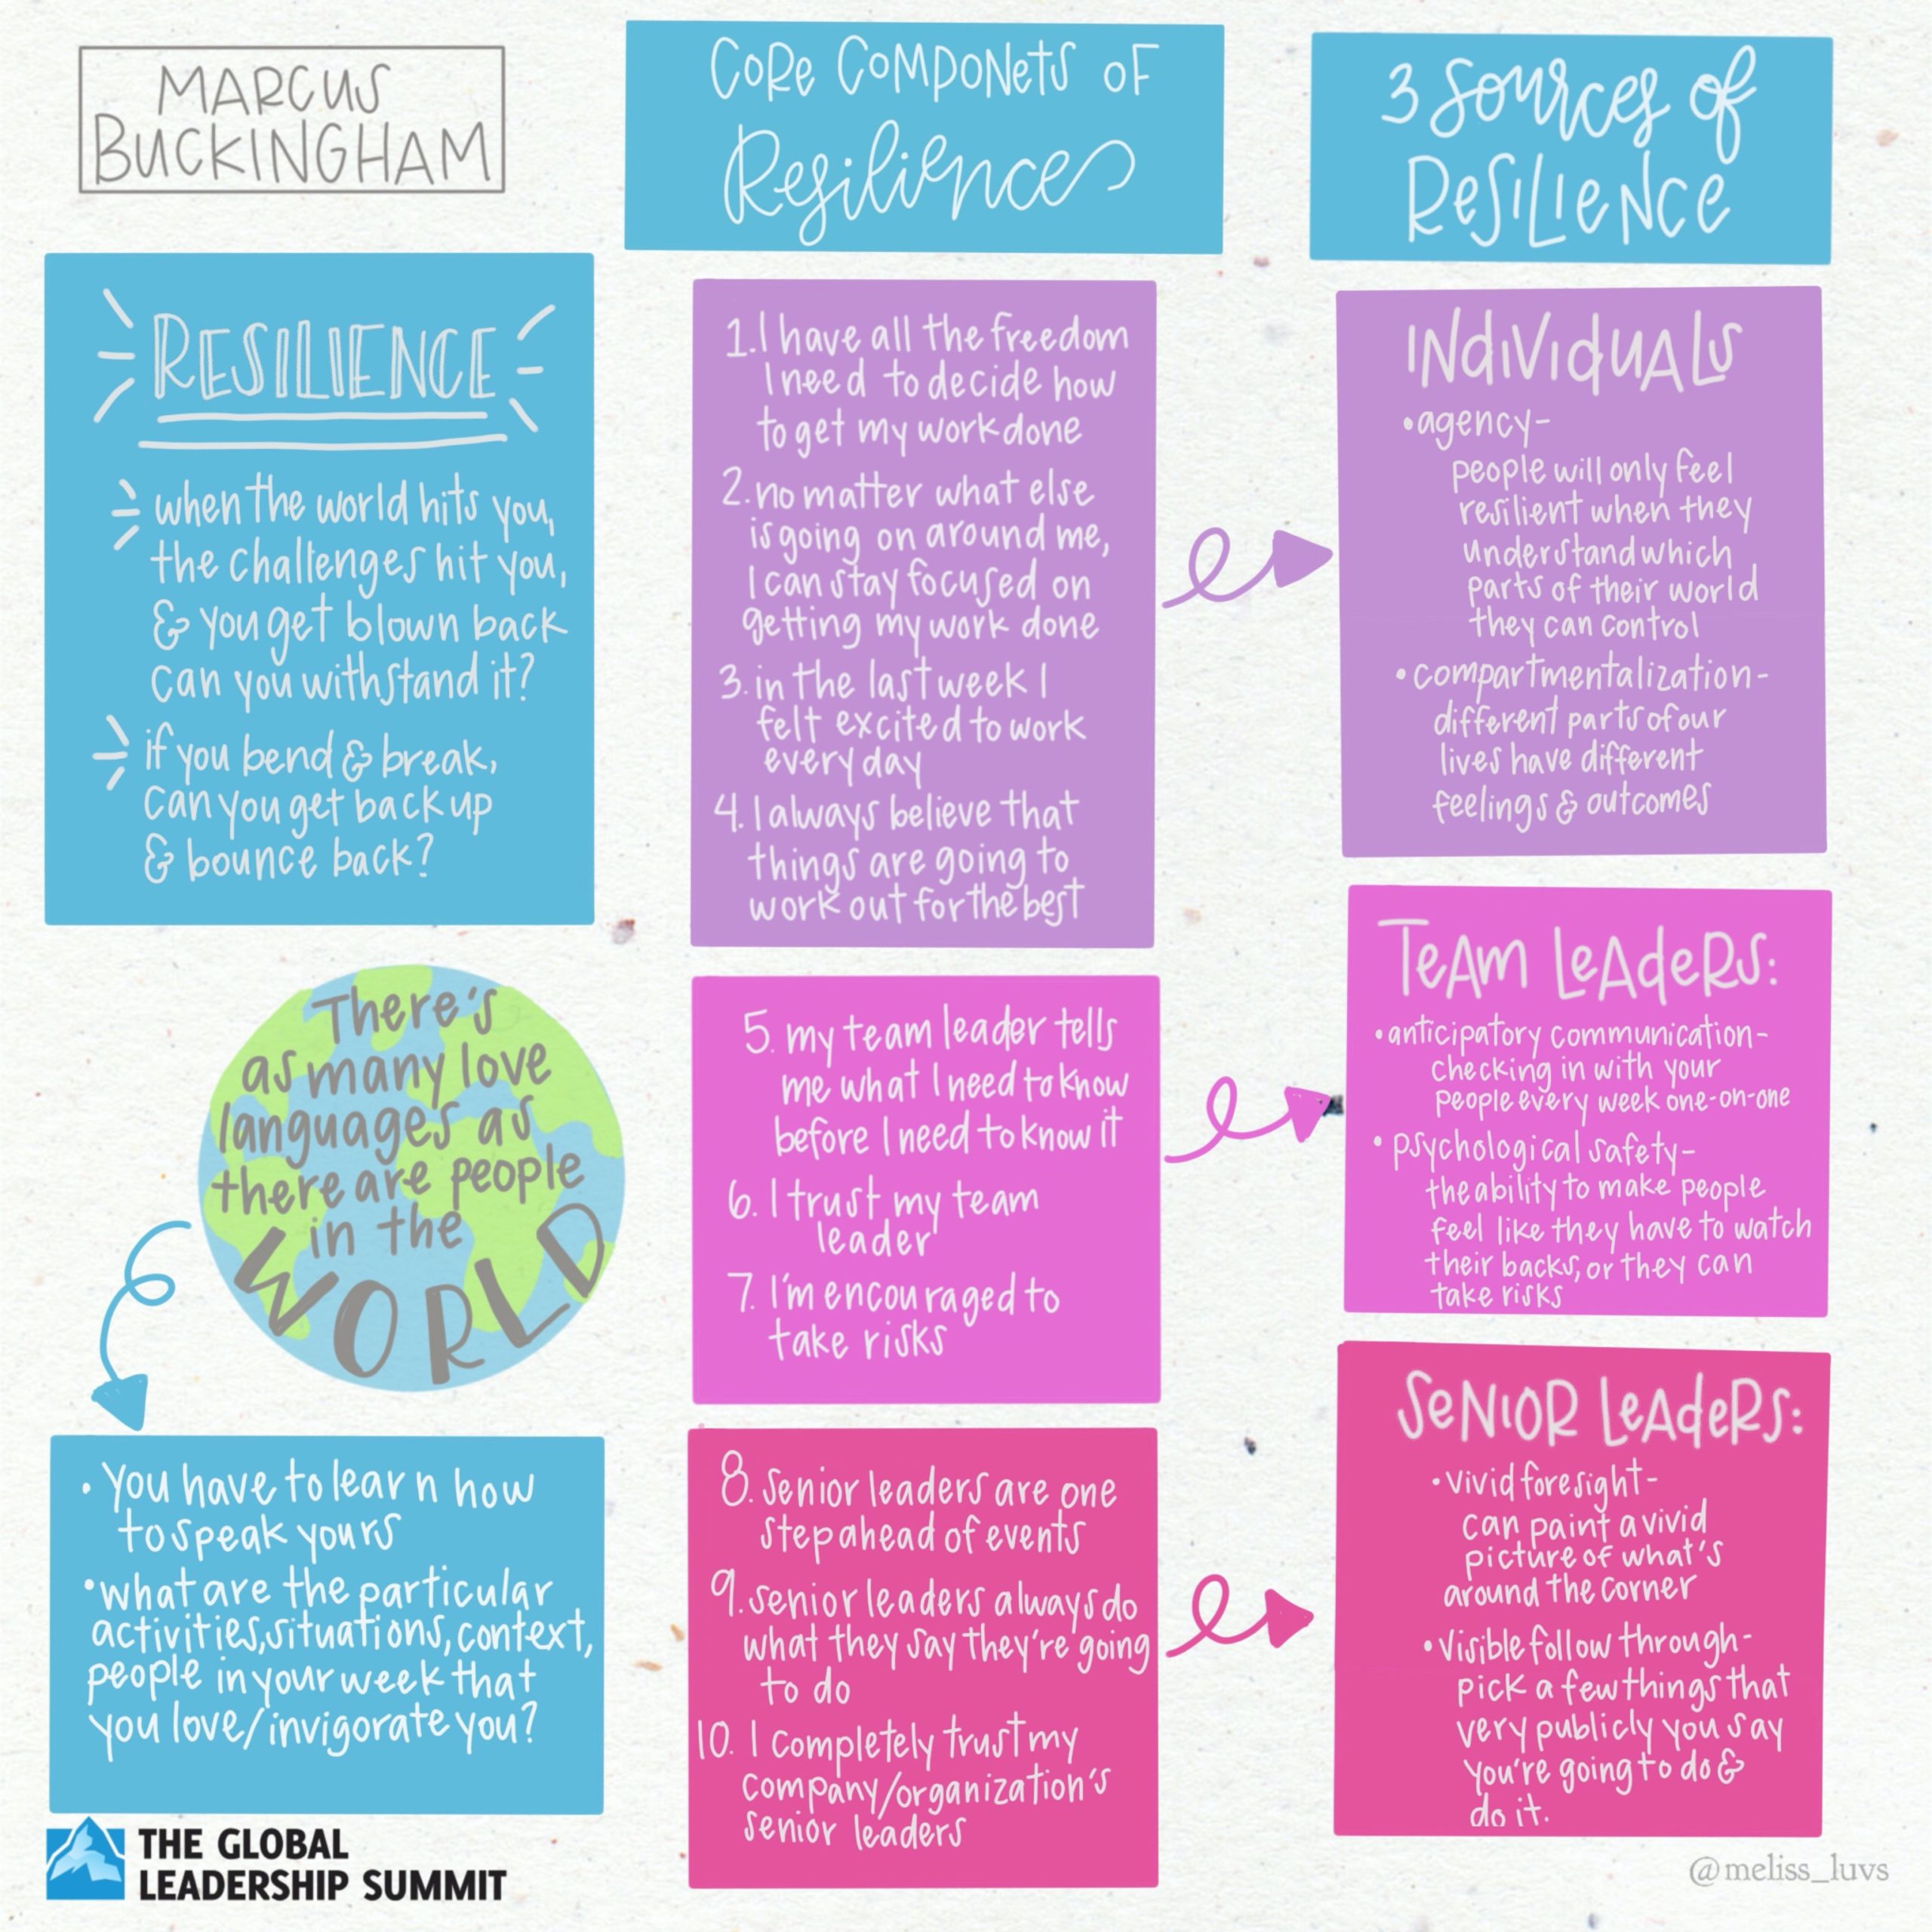 MARCUS
BUCKINGHAM
RESILIENCE
when the world hits you,
the challenges hit you,
& you get blown back
can you withstand it?
if you bend & break,
can you get back up
& bounce back?
There's
as many love
languages as
there are people
in the
WORLD
• You have to learn how
to speak yours
• what are the particular
activities, situations, context,
people in your week that
you love/invigorate you?
THE GLOBAL
LEADERSHIP SUMMIT
CORE COMPONETS OF
Resilience
1. I have all the freedom
I need to decide how
to get my work done
2. no matter what else
is going on around me,
I can stay focused on
getting my work done
3. in the last week I
felt excited to work
every day
4. I always believe that
things are going to
work out for the best
5. my team leader tells
me what I need to know
before I need to know it
6. I trust my team
leader
7. I'm encouraged to
take risks
8. senior leaders are one
step ahead of events
9. senior leaders always do
what they say they're going
to do
10. I completely trust my
company/organization's
senior leaders
3 Sources of
RESILIENCE
INDIVIDUALS
• agency-
people will only feel
resilient when they
understand which
parts of their world
they can control
• compartmentalization-
different parts of our
lives have different
feelings & outcomes
TEAM LEADERS:
• anticipatory communication-
checking in with your
people every week one-on-one
• psychological safety-
the ability to make people
feel like they have to watch
their backs, or they can
take risks
SENIOR LEADERS:
• vivid foresight-
can paint a vivid
picture of what's
around the corner
• visible follow through-
pick a few things that
very publicly you say
you're going to do &
do it.
@meliss_luvs